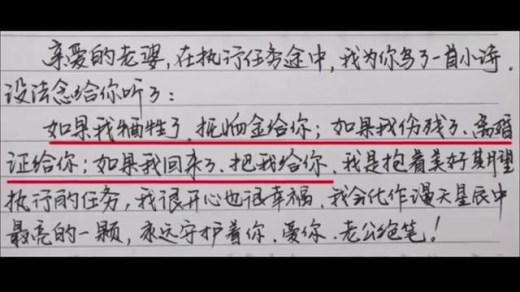 亲爱的老婆,在执行任务途中,我为你写了一首小诗.
没法念给你听了:
如果我牺牲了,抚恤金给你;如果我伤残了、离婚
证给你;如果我回来了.把我给你.我是抱着美好期望
执行的任务,我很开心也很幸福,我会化作漫天星辰中
最亮的一颗,永远守护着你.爱你.老公绝笔!